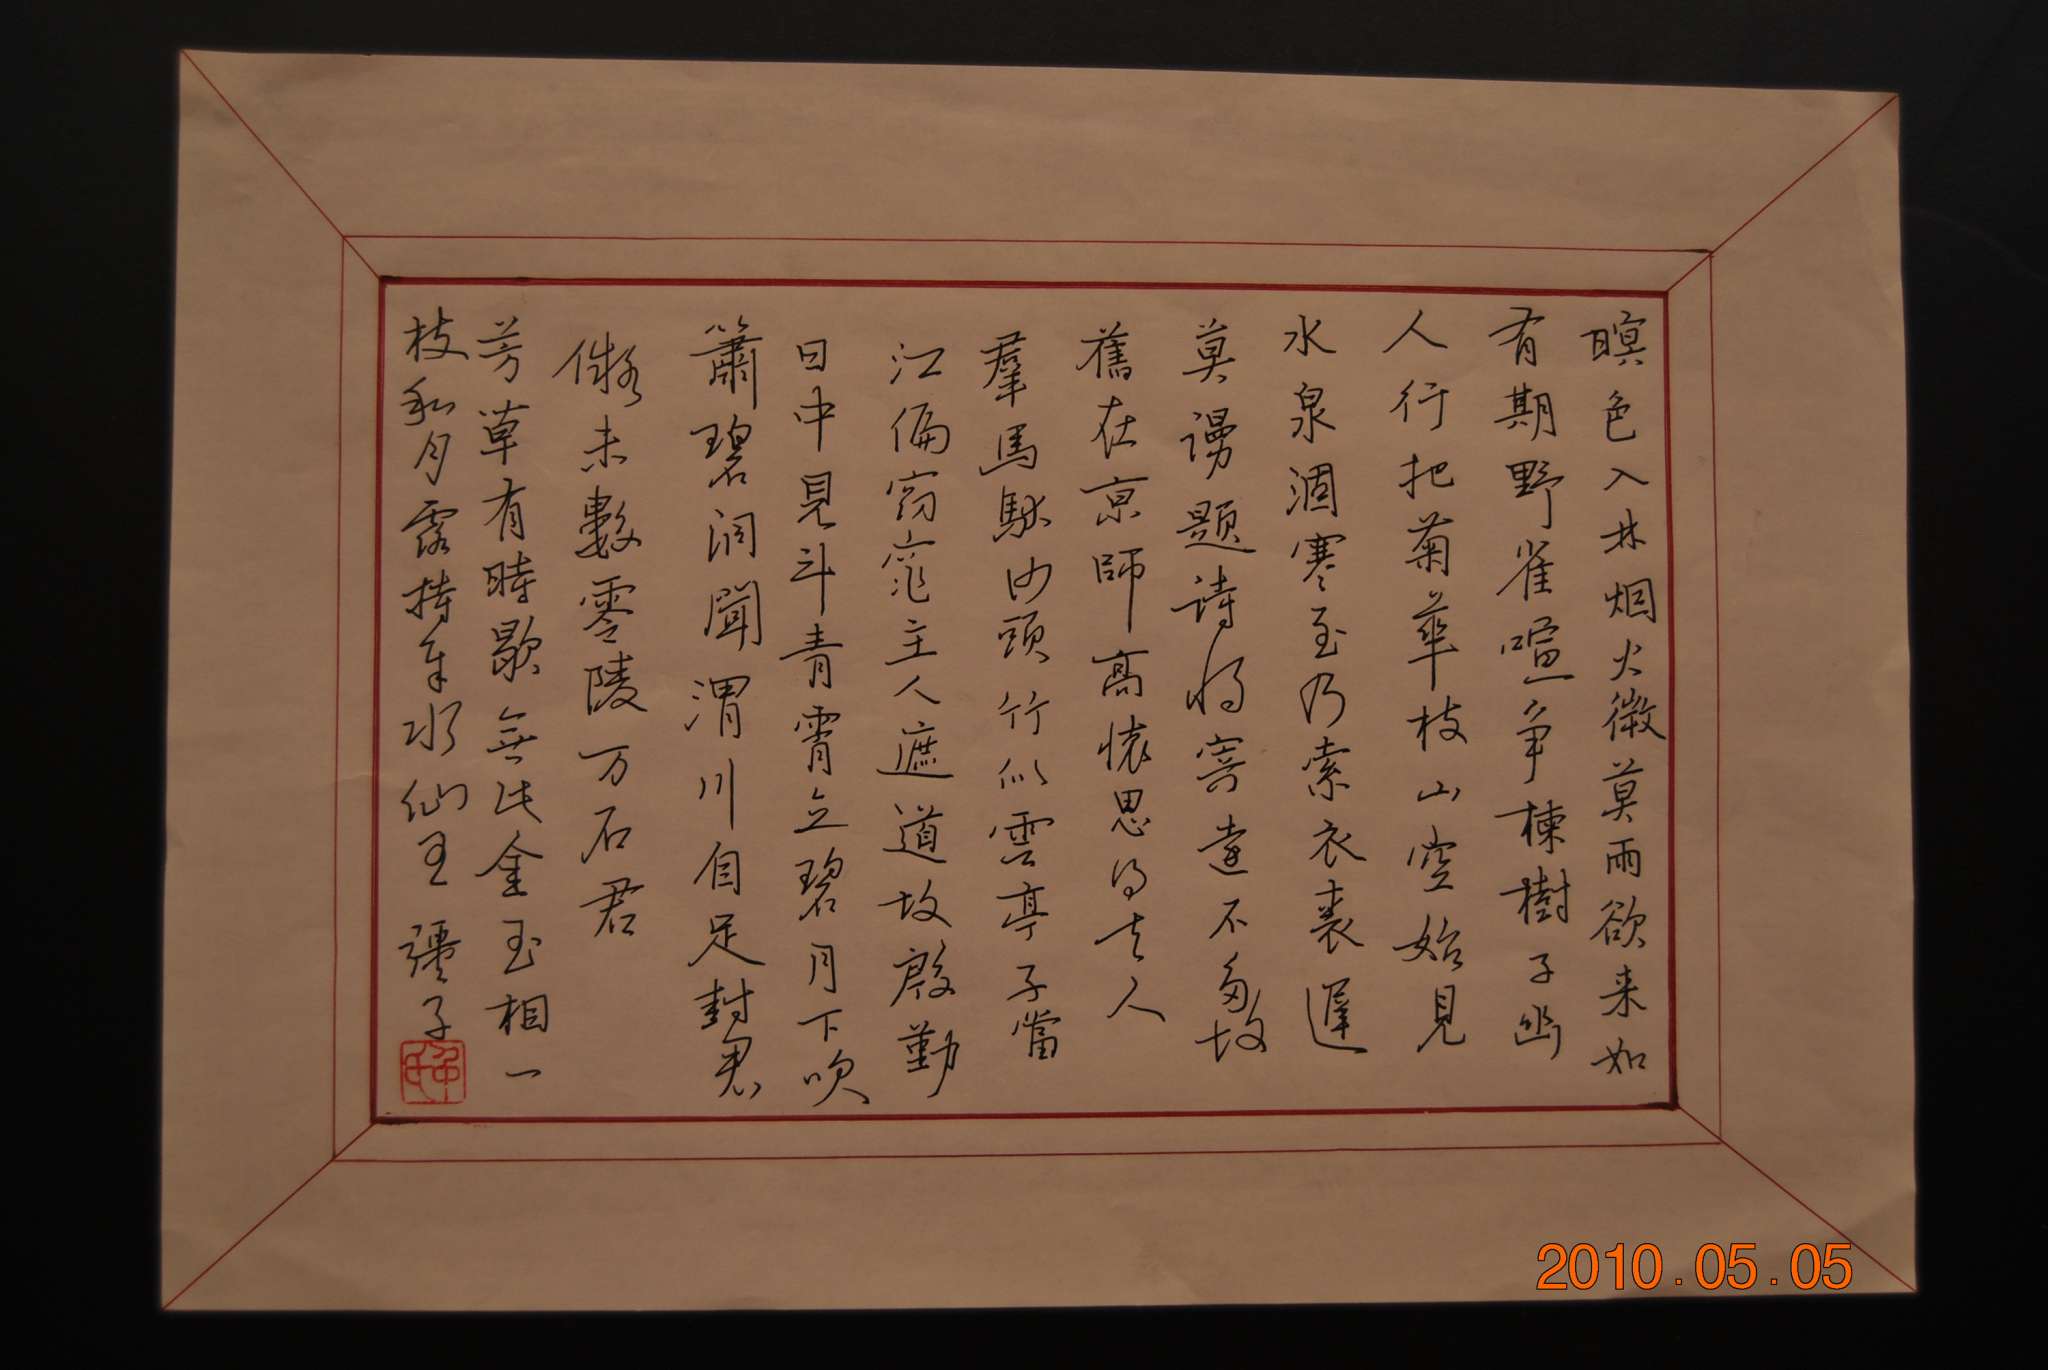 暝色入林烟火微莫雨欲来如
有期野雀喧争楝樹子幽
人行把菊華枝山空始見
水泉涸寒至乃索衣裘遲
莫謾題诗将寄遠不多故
舊在京師高懷思得士人
羣馬馱沙頭竹似雲亭子當
江偏窈窕主人遮道故殷勤
日中見斗青霄立碧月下吹
簫碧洞聞渭川自足封君
未數零陵万石君
芳草有時歇無比金玉相一
枝和月露持
水仙王 彊子
2010.05.05